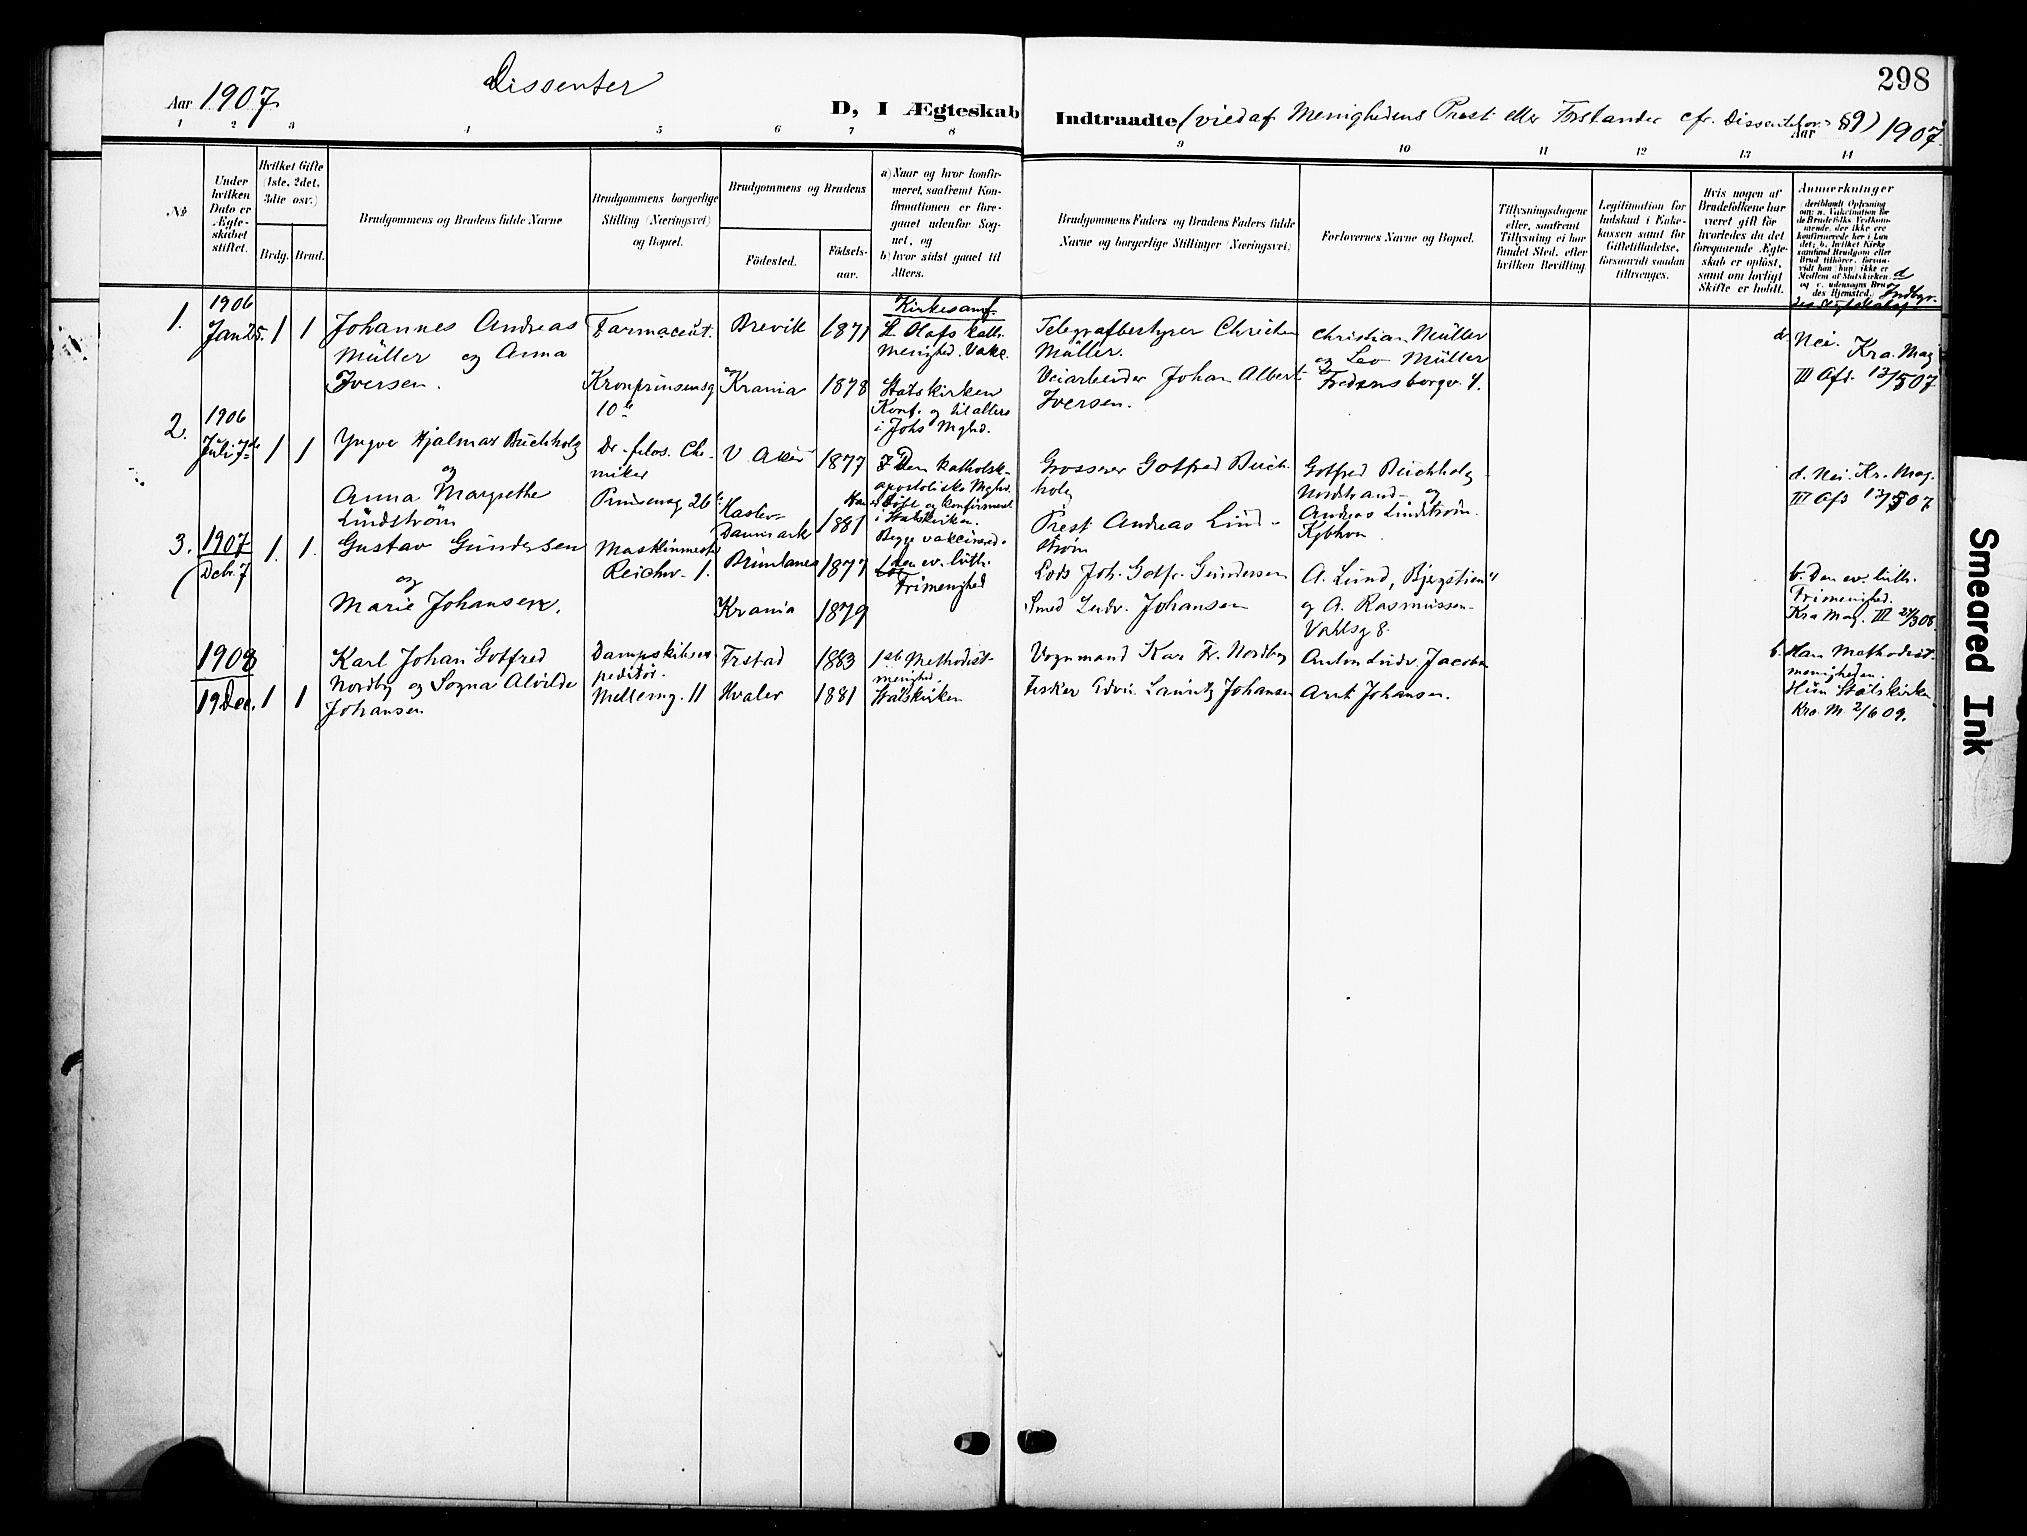 298
Dissenter
Aar 1907
D, I Ægteskab
Indtraadte (vied af Menighedens Prest eller Forstander cfr. Dissenterlov §9)
Aar 1907
1 2 3 4 5 6 7 8 9 10 11 12 13 14
No
Under
hvilken
Dato er
Ægte-
skabet
stiftet.
Hvilket Gifte
(1ste, 2det,
3die osv.)
Brdg. Brud.
Brudgommens og Brudens fulde Navne
Brudgommens borgerlige
Stilling (Næringsvei)
og Bopæl.
Brudgommens og Brudens
Fødested.
Fødsels-
aar.
a) Naar og hvor konfir-
meret, saafremt Kon-
firmationen er fore-
gaaet udenfor Sog-
net, og
b) hvor sidst gaaet til
Alters.
Brudgommens Faders og Brudens Faders fulde
Navne og borgerlige Stillinger (Næringsvei)
Forlovernes Navne og Bopæl.
Tillysningsdagene
eller, saafremt
Tillysning ei har
fundet Sted, efter
hvilken Bevilling.
Legitimation for
Indskud i Enke-
kassen samt for
Giftetilladelse,
forsaavidt saadan
tiltrænges.
Hvis nogen af
Brudefolkene har
været gift før
hvorledes da det
foregaaende Ægte-
skab er opløst,
samt om lovligt
Skifte er holdt.
Anmærkninger
(deriblandt Oplysning
om: a. Vakcination for
de Brudefolks Vedkom-
mende, der ikke ere
konfirmerede her i Lan-
det; b. hvilket Kirke
samfund Brudgom eller
Brud tilhører, forsaa-
vidt han (hun) ikke er
Medlem af Statskirken;
og c. udensogns Bru-
des Hjemsted.)
1.
1906
Jan 25.
1 1
Johannes Andreas
Müller og Anna
Iversen.
Farmaceut.
Kronprinsensg
10
Brevik 1871
Krania 1878
Kirkesamf
St Olafs kath.
menighed. Vakc.
Statskirken
Konf. og til alters
i Johs Mghd.
Telegrafbestyrer Christen
Müller.
Veiarbeider Johan Albert
Iversen.
Christian Müller
og Leo Müller
Fredensborgv. 4.
d. Nei. Kra. Mag
III Afd. 12/5 07
2.
1906
Juli 7de
1 1
Yngve Hjalmar Buchholz
og
Anna Margrethe
Lindstrøm
Dr. filos. Che-
miker
Prinsensg 26
V. Aker 1877
Haslev
Danmark 1881
Den katholsk-
apostoliske Mghd.
døbt og konfirmert
i Statskirken.
Begge vakcinered.
Grosserer Gotfred Buch-
holz
Prest Andreas Lind-
strøm
Gotfred Buchholz
Nordstrand og
Andreas Lindstrøm.
Kjbhvn.
d. Nei. Kr. Mag.
III Afd 12/5 07
3.
1907
Debr. 7
1. 1.
Gustav Gundersen
og
Marie Johansen.
Maskinmester
Reichsv. 1.
Brunlanes 1877
Krania 1879
den ev. luth.
Frimenighed
Lods Joh. Gotfr. Gundersen
Smed Ludv. Johansen
A. Lund, Bjergstien
og A. Rasmussen
Vahlsg 8.
b. Den ev. luth.
Frimenighed.
Kra Mag. III 24/3 08.
1908
19 Dec. 1 1
Karl Johan Gotfred
Nordby og Sogna Alvilde
Johansen
Dampskibsex-
peditør.
Mellemg. 11
Frstad 1883
Hvaler 1881
1ste Methodist-
menighed.
Statskirken
Vognmand Kar Fr. Nordby
Fisker Edvin Lauritz Johansen
Anton Ludv. Jacobsen
Arnt Johansen.
b. Han Methodist-
menigheden.
Hun Statskirken
Kra. M. 2/6 09.
Smeared Ink